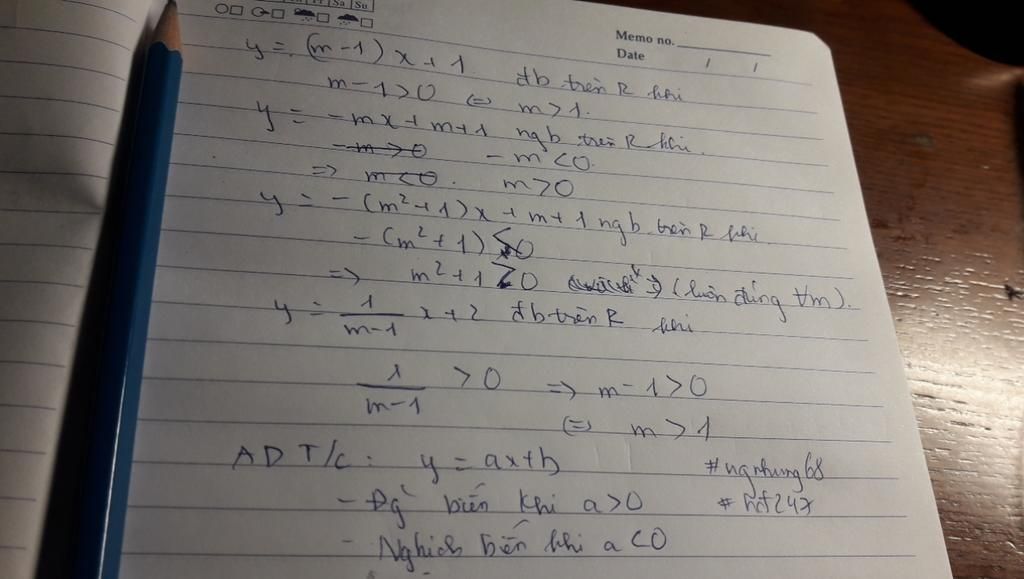 Sa Su
Memo no.
Date / /
y = (m-1)x+1 đb trên R khi
m-1>0 ⇔ m>1.
y = -mx+m+1 ngb trên R khi.
-m>0 -m<0.
=> m<0. m>0
y = -(m²+1)x+m+1 ngb trên R khi.
-(m²+1)<0
=> m²+1>0 (luôn đúng ∀m).
y = 1/(m-1) x+2 đb trên R khi
1/(m-1) >0 => m-1>0
⇔ m>1
AD T/c: y = ax+b #ngnhung68
- Đg biến khi a>0 #hf247
- Nghịch biến khi a<0